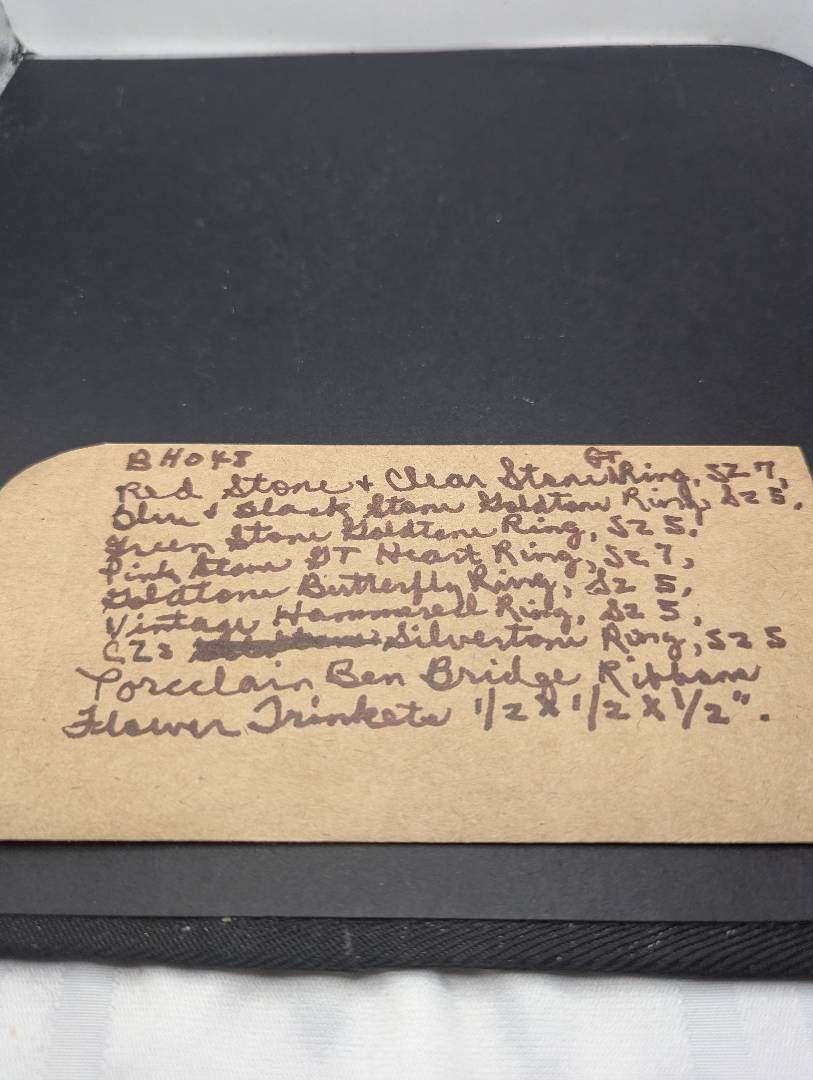 BH048
Red Stone & Clear Stone GT Ring, SZ 7,
Blue & Black Stone Goldtone Ring, SZ 5,
Green Stone Goldtone Ring, SZ 5,
Pink Stone GT Heart Ring, SZ 7,
Goldtone Butterfly Ring, SZ 5,
Vintage Hammered Ring, SZ 5,
CZs Silvertone Ring, SZ 5
Porcelain Ben Bridge Ribbons
Flower Trinkets 1/2 X 1/2 X 1/2".